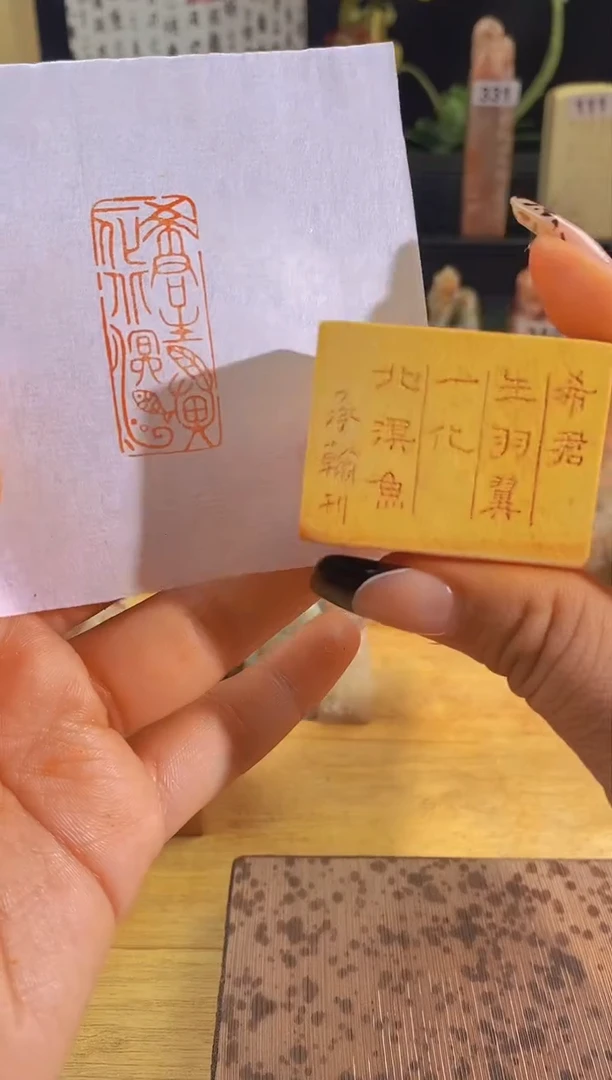 希君
生羽翼
一化
北溟魚
承翰刊
希君生羽翼
一化北溟魚
331